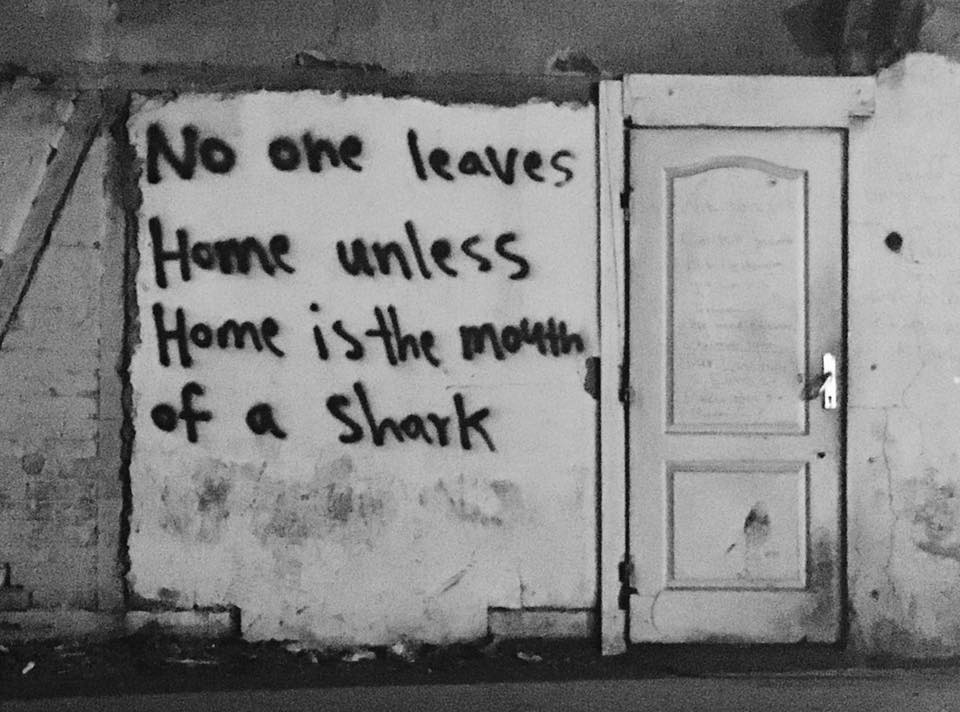 No one leaves
Home unless
Home is the mouth
of a Shark